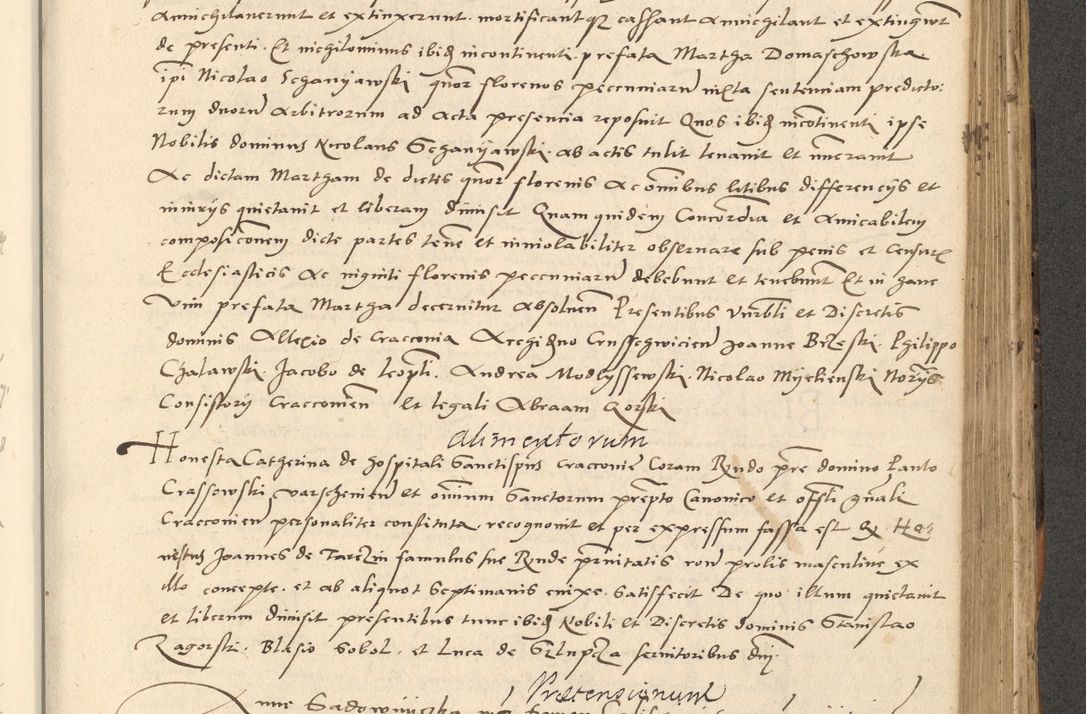 Annichilaverunt et extinxerunt mortificantqz cassant Annichilant et extingwnt
de presenti. Et nichilominus ibidem incontinenti prefata Martha Domaschowska
ipsi Nicolao Schanyawski quatuor florenos pecuniarum iuxta sentenciam predicto:
rum duorum Arbitrorum ad Acta presencia reposuit Quos ibidem incontinenti ipse
Nobilis dominus Nicolaus Schanyawski. ab actis tulit levavit et numeravit
Ac dictam Martham de dictis quatuor florenis Ac omnibus litibus differencys et
iniurys quietavit et liberam dimisit Quam quidem Concordia et Amicabilem
composiconem dicte partes tenere et inviolabiliter observare sub penis et Censuris
Ecclesiasticis Ac viginti florenis pecuniarum debebunt et tenebunt Et in hanc
vim prefata Martha decernitur Absolven Presentibus Vnrbli et Discretis
dominis Allexio de Cracovia Archidno Cruschwicien Joanne Brzeski. Philippo
Chalawski Jacobo de leopli. Andrea Modlyssewski. Nicolao Myelienski Norys
Consistory Cracovien et legali Abraam Gorski
Alimentorum
Honesta Catherina de hospitali Sanctispus Cracovie Coram Rndo pre domino Paulo
Crassowski varschevien et omnium Sanctorum prepto Canonico et offli gnali
Cracovien personaliter constituta. recognovit et per expressum fassa est Qz Ho:
nestus Joannes de Tarczin famulus sue Rnde prnitatis ron prolis masculine ex
illo concepte. et ab aliquot Septimanis enixe. Satisfecit De quo illum quietavit
et liberum dimisit presentibus tunc ibidem Nobili et Discretis dominis Stanislao
Zagorski. Blasio Sobol. et Luca de servitoribus dni.
Praetensionum